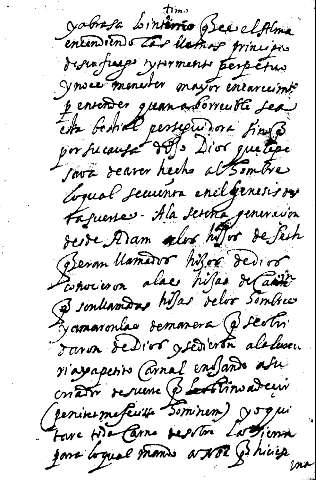 timo
y abrasa lo interno q̃ es el Alma
encendiendo las llamas principio
de su fuego y tormento perpetuo
y no es menester mayor encarecimto
p̃ entender quan aborrecible sea
esta bestial perseguidora sino q̃
por su causa dijo Dios que le pe
sava de aver hecho al hombre
lo qual se cuenta en el genesis des
ta suerte. A la setena generacion
desde Adam los hijos de Seth
q̃ eran llamados hijos de Dios
conocieron a las hijas de Cain
q̃ son llamadas hijas de los hombres
y amaronlas de manera q̃ se olvi
daron de Dios y se dieron a la luxu
ria y apetito Carnal enojando a su
criador de suerte q̃ le vino a decir
(penitet me fecisse hominem) yo qui
tare toda Carne de sobre la tierra
para lo qual mando a Noe q̃ hiciese
una